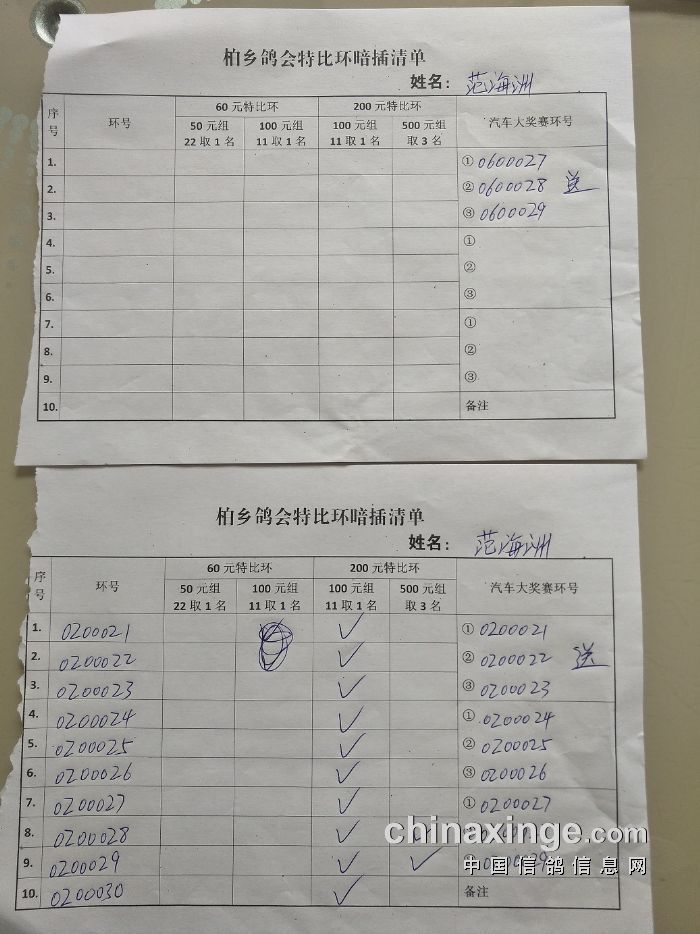 柏乡鸽会特比环暗插清单
姓名: 范海洲
序号 环号 60 元特比环 200 元特比环 汽车大奖赛环号
50 元组 22 取 1 名 100 元组 11 取 1 名 100 元组 11 取 1 名 500 元组 取 3 名
1. ① 0600027
2. ② 0600028 送
3. ③ 0600029
4. ①
5. ②
6. ③
7. ①
8. ②
9. ③
10. 备注
柏乡鸽会特比环暗插清单
姓名: 范海洲
序号 环号 60 元特比环 200 元特比环 汽车大奖赛环号
50 元组 22 取 1 名 100 元组 11 取 1 名 100 元组 11 取 1 名 500 元组 取 3 名
1. 0200021 ✓ ① 0200021
2. 0200022 ✓ ② 0200022 送
3. 0200023 ✓ ③ 0200023
4. 0200024 ✓ ① 0200024
5. 0200025 ✓ ② 0200025
6. 0200026 ✓ ③ 0200026
7. 0200027 ✓ ① 0200027
8. 0200028 ✓
chinaxinge.com
9. 0200029 ✓ ✓
中国信鸽信息网
10. 0200030 ✓ 备注